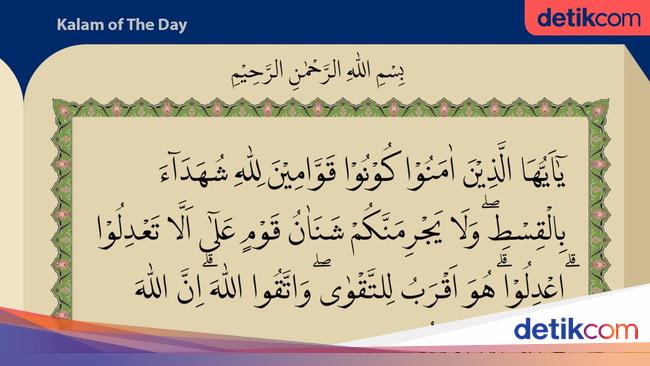 Kalam of The Day
detikcom
بِسْمِ اللهِ الرَّحْمٰنِ الرَّحِيْمِ
يٰٓاَيُّهَا الَّذِيْنَ اٰمَنُوْا كُوْنُوْا قَوَّامِيْنَ لِلّٰهِ شُهَدَاۤءَ
بِالْقِسْطِۖ وَلَا يَجْرِمَنَّكُمْ شَنَاٰنُ قَوْمٍ عَلٰٓى اَلَّا تَعْدِلُوْا
ۗاِعْدِلُوْاۗ هُوَ اَقْرَبُ لِلتَّقْوٰىۖ وَاتَّقُوا اللّٰهَ ۗاِنَّ اللّٰهَ
detikcom